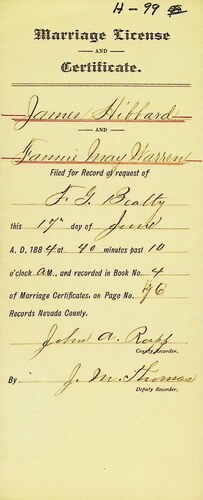 H-99
Marriage License
AND
Certificate.
James Hibbard
AND
Fannie May Warren
Filed for Record at request of
F. G. Beatty
this 17" day of June
A. D. 1884 at 40 minutes past 10
o'clock A M., and recorded in Book No. 4
of Marriage Certificates, on Page No. 76
Records Nevada County.
John A. Rapp
County Recorder.
By J. M. Thomas
Deputy Recorder.